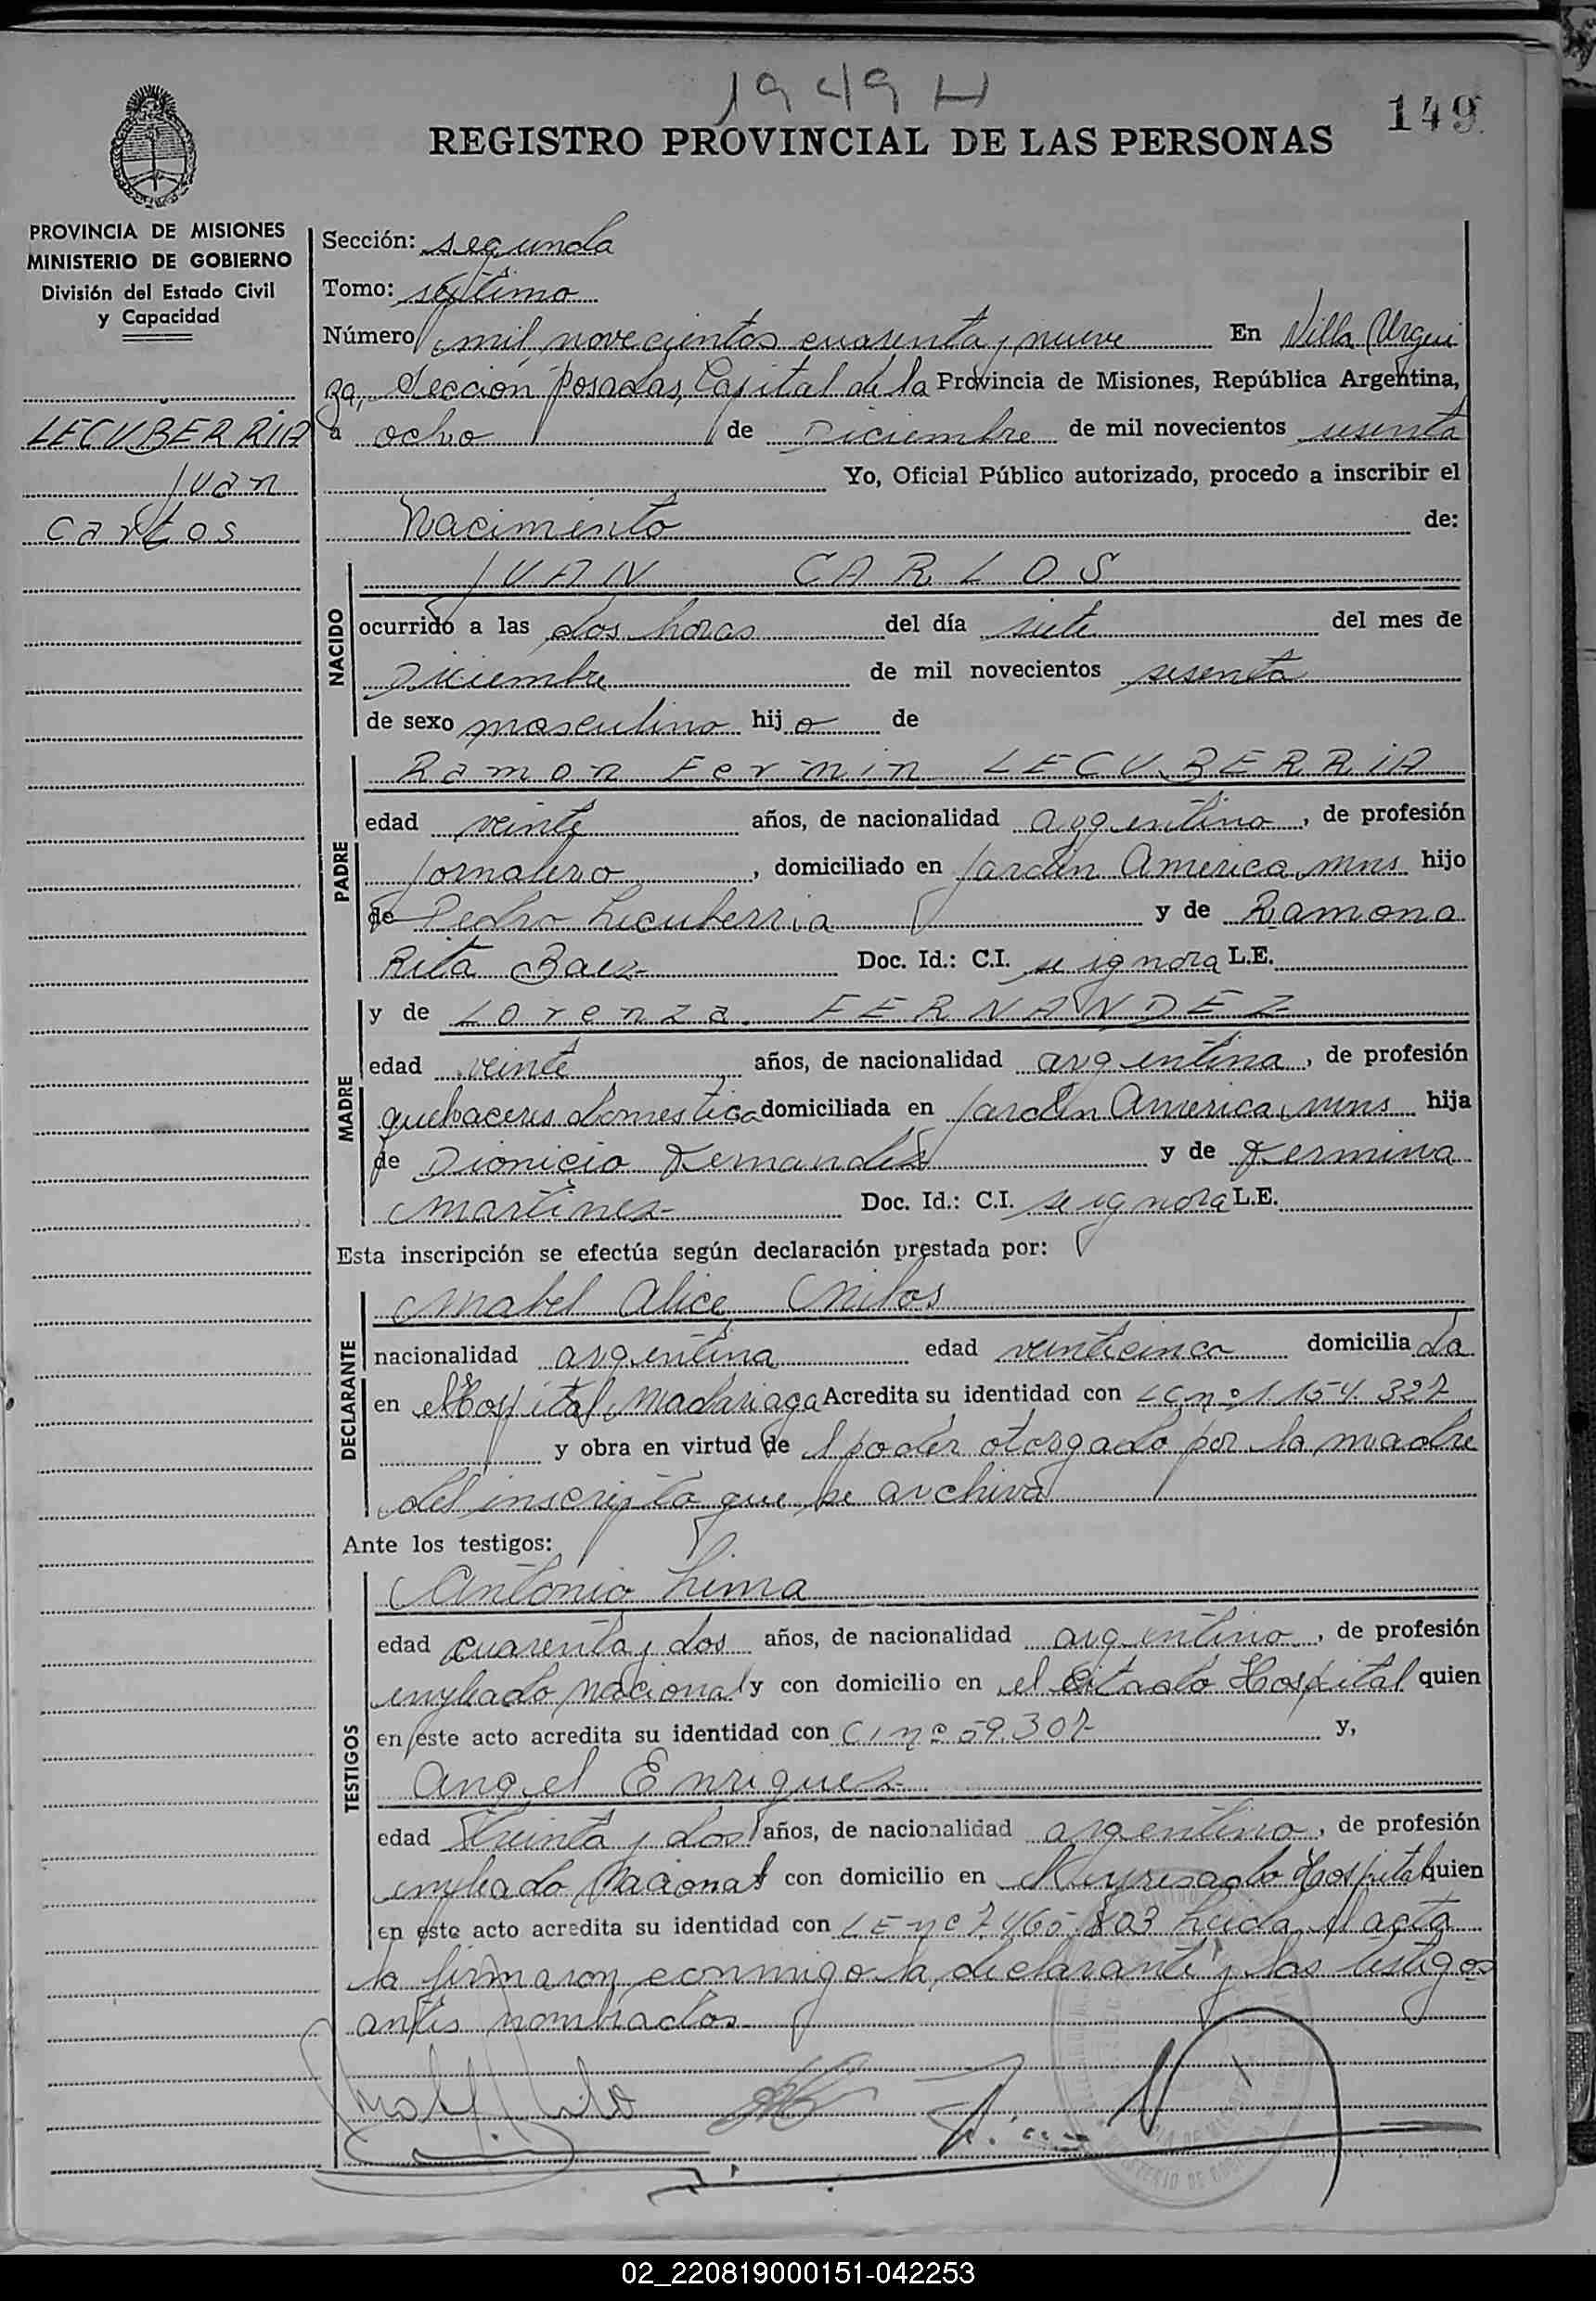 1949 H
149
REGISTRO PROVINCIAL DE LAS PERSONAS
PROVINCIA DE MISIONES
MINISTERIO DE GOBIERNO
División del Estado Civil
y Capacidad
LECUBERRIA
Juan
Carlos
Sección: segunda
Tomo: septimo
Número mil novecientos cuarenta y nueve En Villa Urqui
za, Sección Posadas, Capital de la Provincia de Misiones, República Argentina,
a ocho de Diciembre de mil novecientos sesenta
Yo, Oficial Público autorizado, procedo a inscribir el
Nacimiento de:
NACIDO
JUAN CARLOS
ocurrido a las dos horas del día siete del mes de
Diciembre de mil novecientos sesenta
de sexo masculino hijo de
PADRE
Ramon Fermin LECUBERRIA
edad veinte años, de nacionalidad argentino, de profesión
Jornalero, domiciliado en Jardin America, mns hijo
de Pedro Lecuberria y de Ramona
Rita Baez Doc. Id.: C.I. se ignora L.E.
MADRE
y de Lorenza FERNANDEZ
edad veinte años, de nacionalidad argentina, de profesión
quehaceres domestica domiciliada en Jardin America, mns hija
de Dionicio Fernandes y de Fermina
Martines Doc. Id.: C.I. se ignora L.E.
Esta inscripción se efectúa según declaración prestada por:
DECLARANTE
Mabel Alice Milos
nacionalidad argentina edad veinticinco domiciliada
en Hospital Madariaga Acredita su identidad con LC nº 1.154.327
y obra en virtud de l poder otorgado por la madre
del inscripto que se archiva
Ante los testigos:
TESTIGOS
Antonio Lima
edad cuarenta y dos años, de nacionalidad argentino, de profesión
empleado nacional y con domicilio en el citado Hospital quien
en este acto acredita su identidad con CI nº 59.307 y,
Angel Enriquez
edad treinta y dos años, de nacionalidad argentino, de profesión
empleado Nacional con domicilio en el expresado Hospital quien
en este acto acredita su identidad con LE nº 7.465.803 Leida el acta
la firmaron conmigo la declarante y los testigos
antes nombrados
02_220819000151-042253